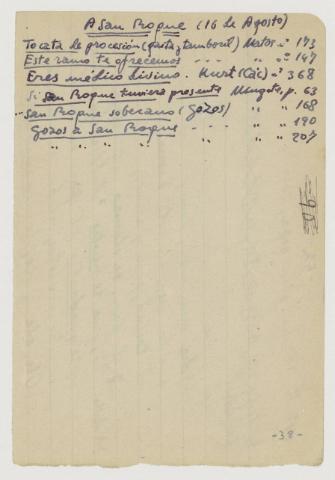 A San Roque (16 de Agosto)
Tocata de procesión (gaita y tamboril) Matos nº 173
Este ramo te ofrecemos - - - " nº 147
Eres médico divino. Kurt (Các) nº 368
Si San Roque tuviera presente Mingote, p. 63
San Roque soberano (Gozos) " " 168
Gozos a San Roque - - - " " 190
" " " " " " " 207
-38-